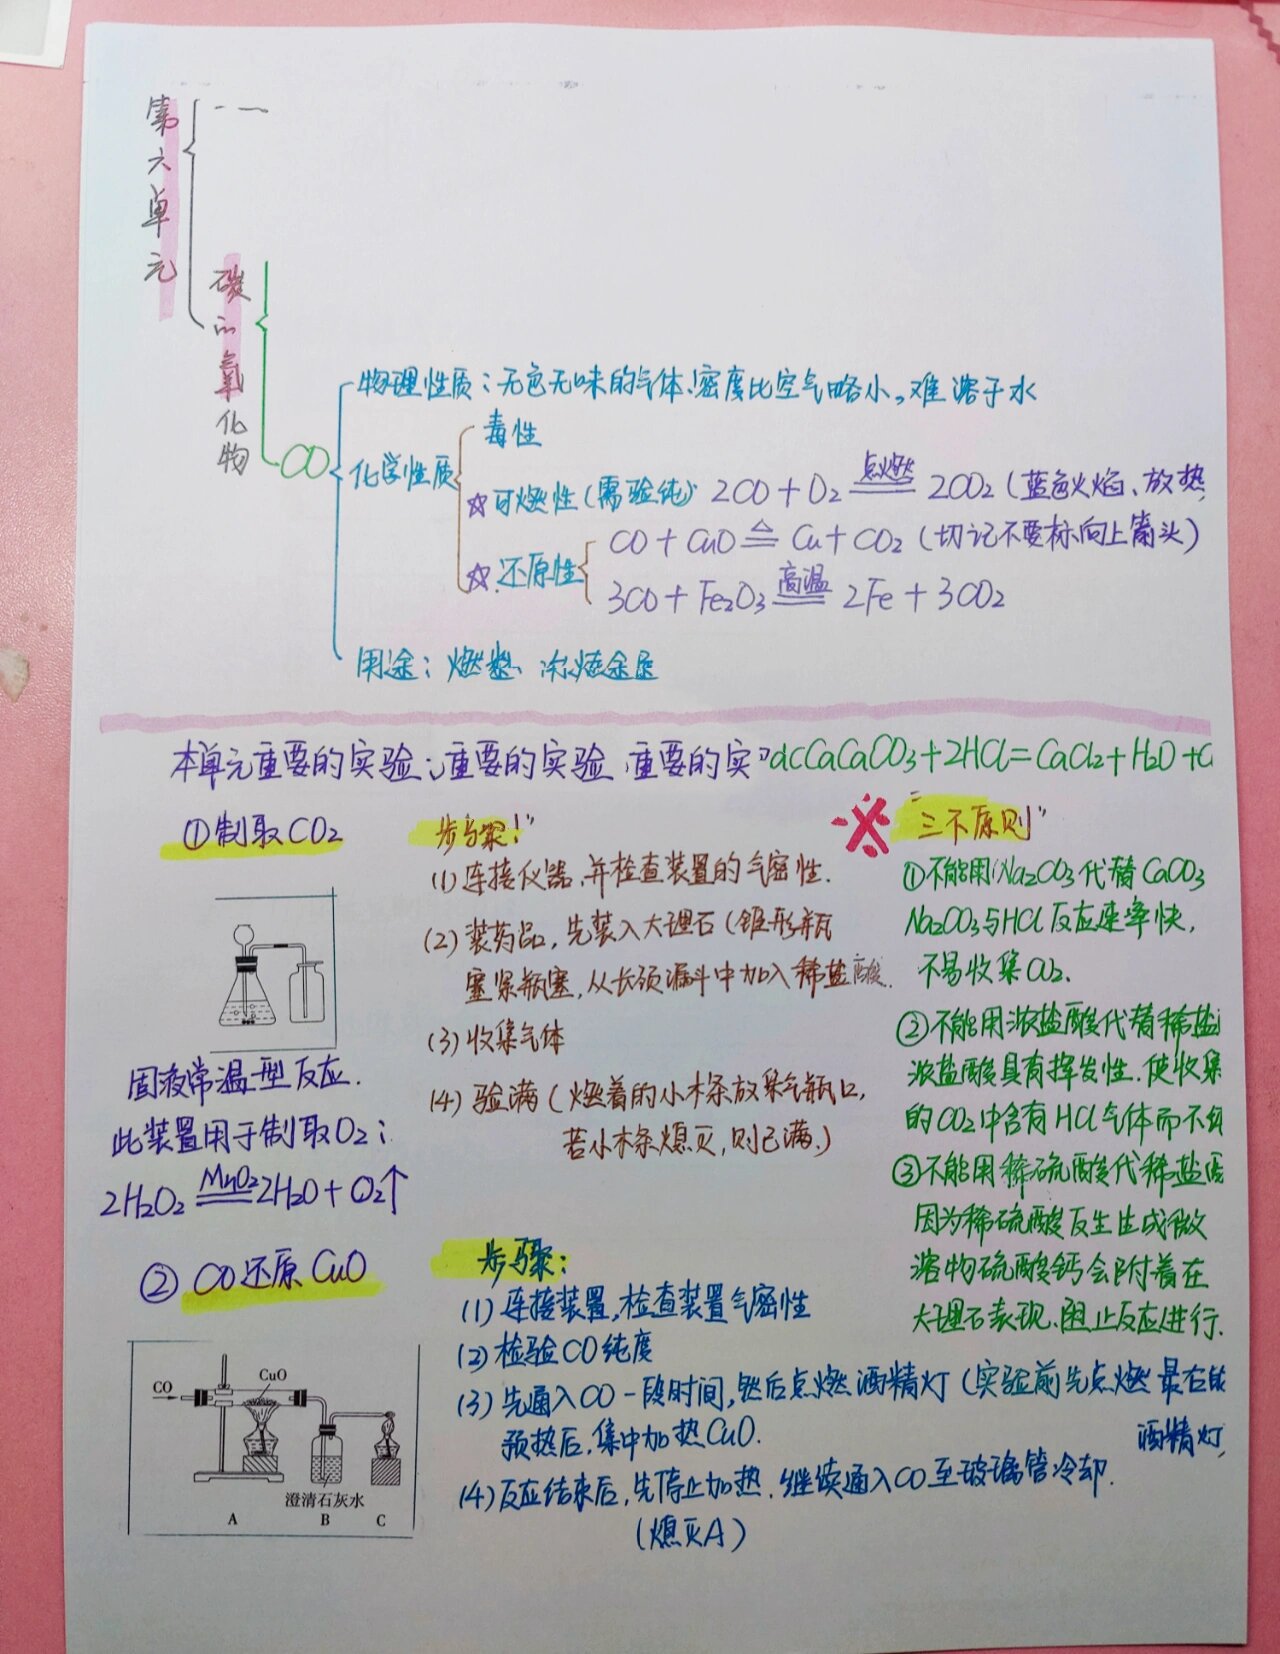 第六单元
碳的氧化物
CO
物理性质：无色无味的气体、密度比空气略小，难溶于水
化学性质
毒性
☆可燃性(需验纯) 2CO+O₂ 点燃 2CO₂ (蓝色火焰、放热
☆.还原性
CO+CuO △ Cu+CO₂ (切记不要标向上箭头)
3CO+Fe₂O₃ 高温 2Fe+3CO₂
用途：燃料、冶炼金属
本单元重要的实验；重要的实验、重要的实
CaCO₃+2HCl=CaCl₂+H₂O+C
①制取CO₂
固液常温型反应.
此装置用于制取O₂：
2H₂O₂ MnO₂ 2H₂O+O₂↑
步骤：
(1)连接仪器,并检查装置的气密性.
(2)装药品,先装入大理石(锥形瓶
塞紧瓶塞,从长颈漏斗中加入稀盐酸.
(3)收集气体
(4)验满(燃着的小木条放集气瓶口,
若小木条熄灭,则已满.)
※"三不原则"
①不能用Na₂CO₃代替CaCO₃
Na₂CO₃与HCl反应速率快,
不易收集CO₂.
②不能用浓盐酸代替稀盐
浓盐酸具有挥发性.使收集
的CO₂中含有HCl气体而不纯
③不能用稀硫酸代稀盐酸
因为稀硫酸反生生成微
溶物硫酸钙会附着在
大理石表现、阻止反应进行.
②CO还原CuO
CO
CuO
澄清石灰水
A
B
C
步骤：
(1)连接装置,检查装置气密性
(2)检验CO纯度
(3)先通入CO一段时间,然后点燃酒精灯(实验前先点燃最右的
酒精灯,
预热后,集中加热CuO.
(4)反应结束后,先停止加热.继续通入CO至玻璃管冷却.
(熄灭A)